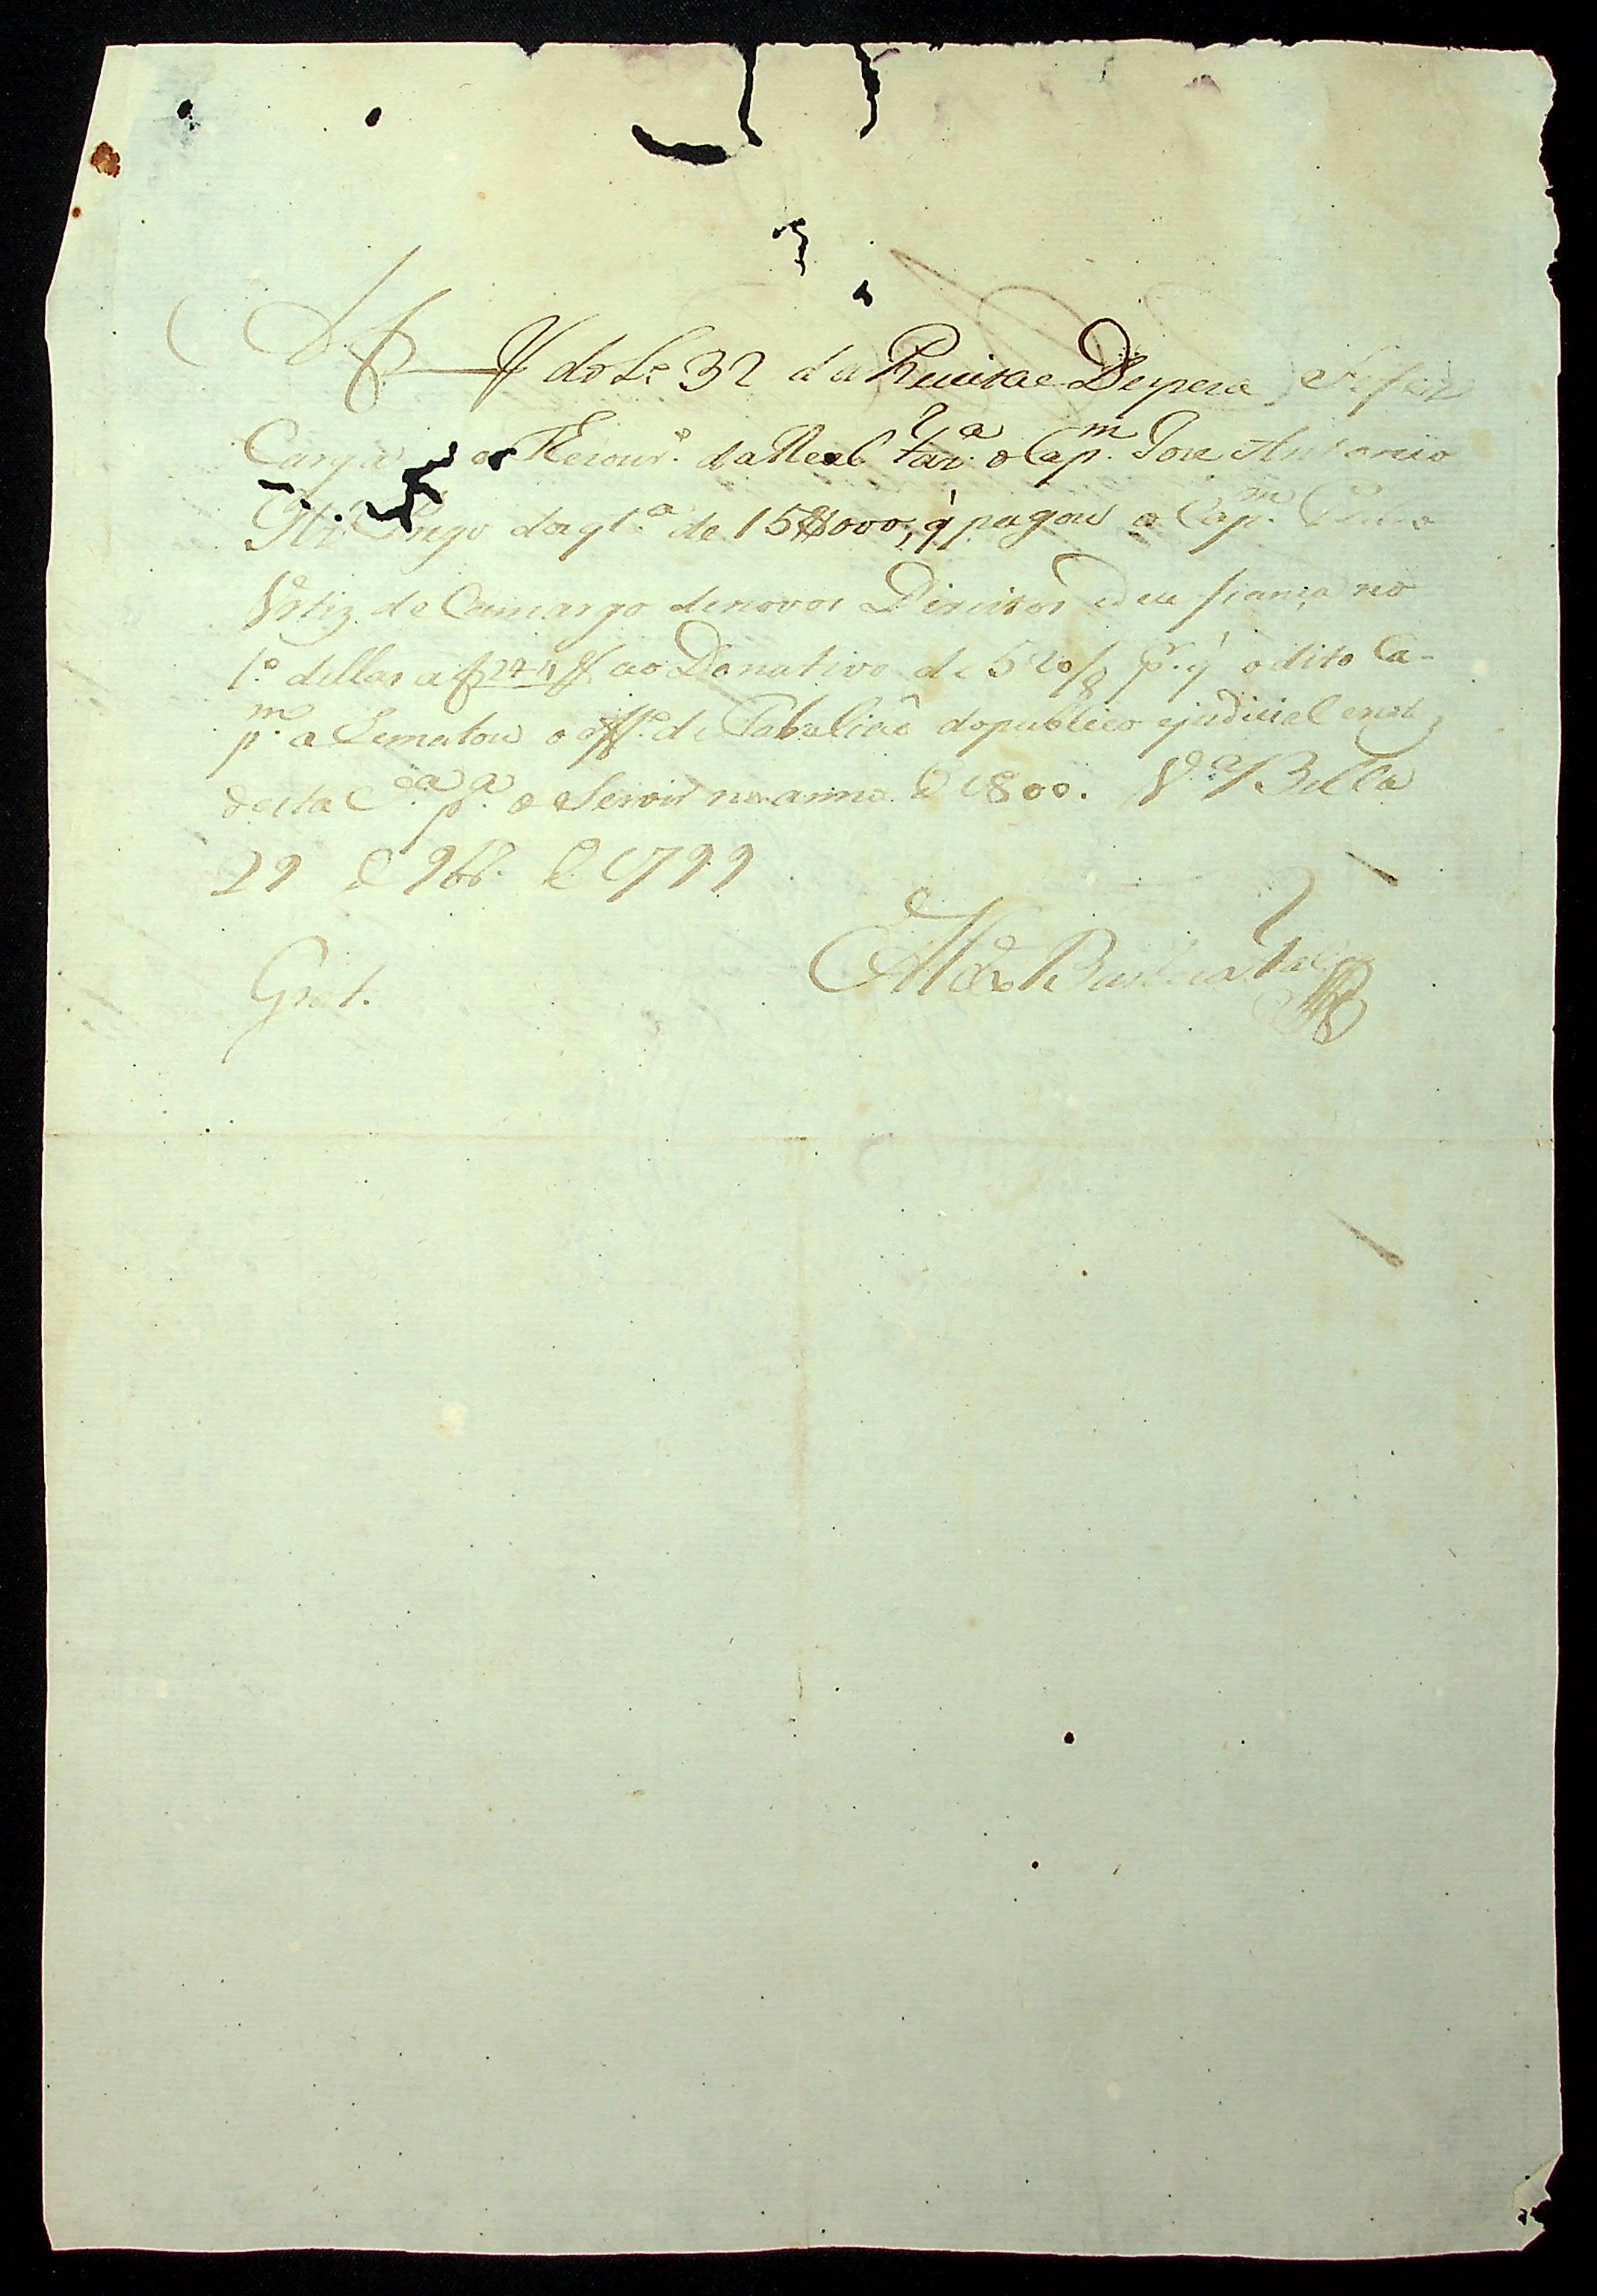 Af do L.º 32 da Receita e Despeza Se fez
Carga ao Thezour.º da Real Faz.ª o Cap.m Joze Antonio
Glz Prego da qt.ª de 15$000, q̃ pagou o Cap.m Pedro
Ortiz de Camargo de novos Direitos e deu fiança no
1.º dellas a f 24 ao Donativo de 520/8 p.r q̃ o dito Ca-
p.m aRematou o off.º de Tabaliaõ do publico e judicial e not
desta C.ª p.ª o Servir no anno de 1800. V.ª Bella
29 de 9br.º de 1799
Grat.